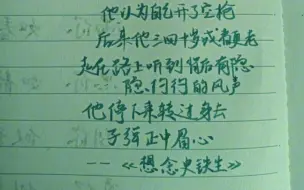 他认为自己开了空枪
后来他三四十岁或者更老
走在路上听到背后有隐
隐约约的风声
他停下来转过身去
子弹正中眉心
--《想念史铁生》